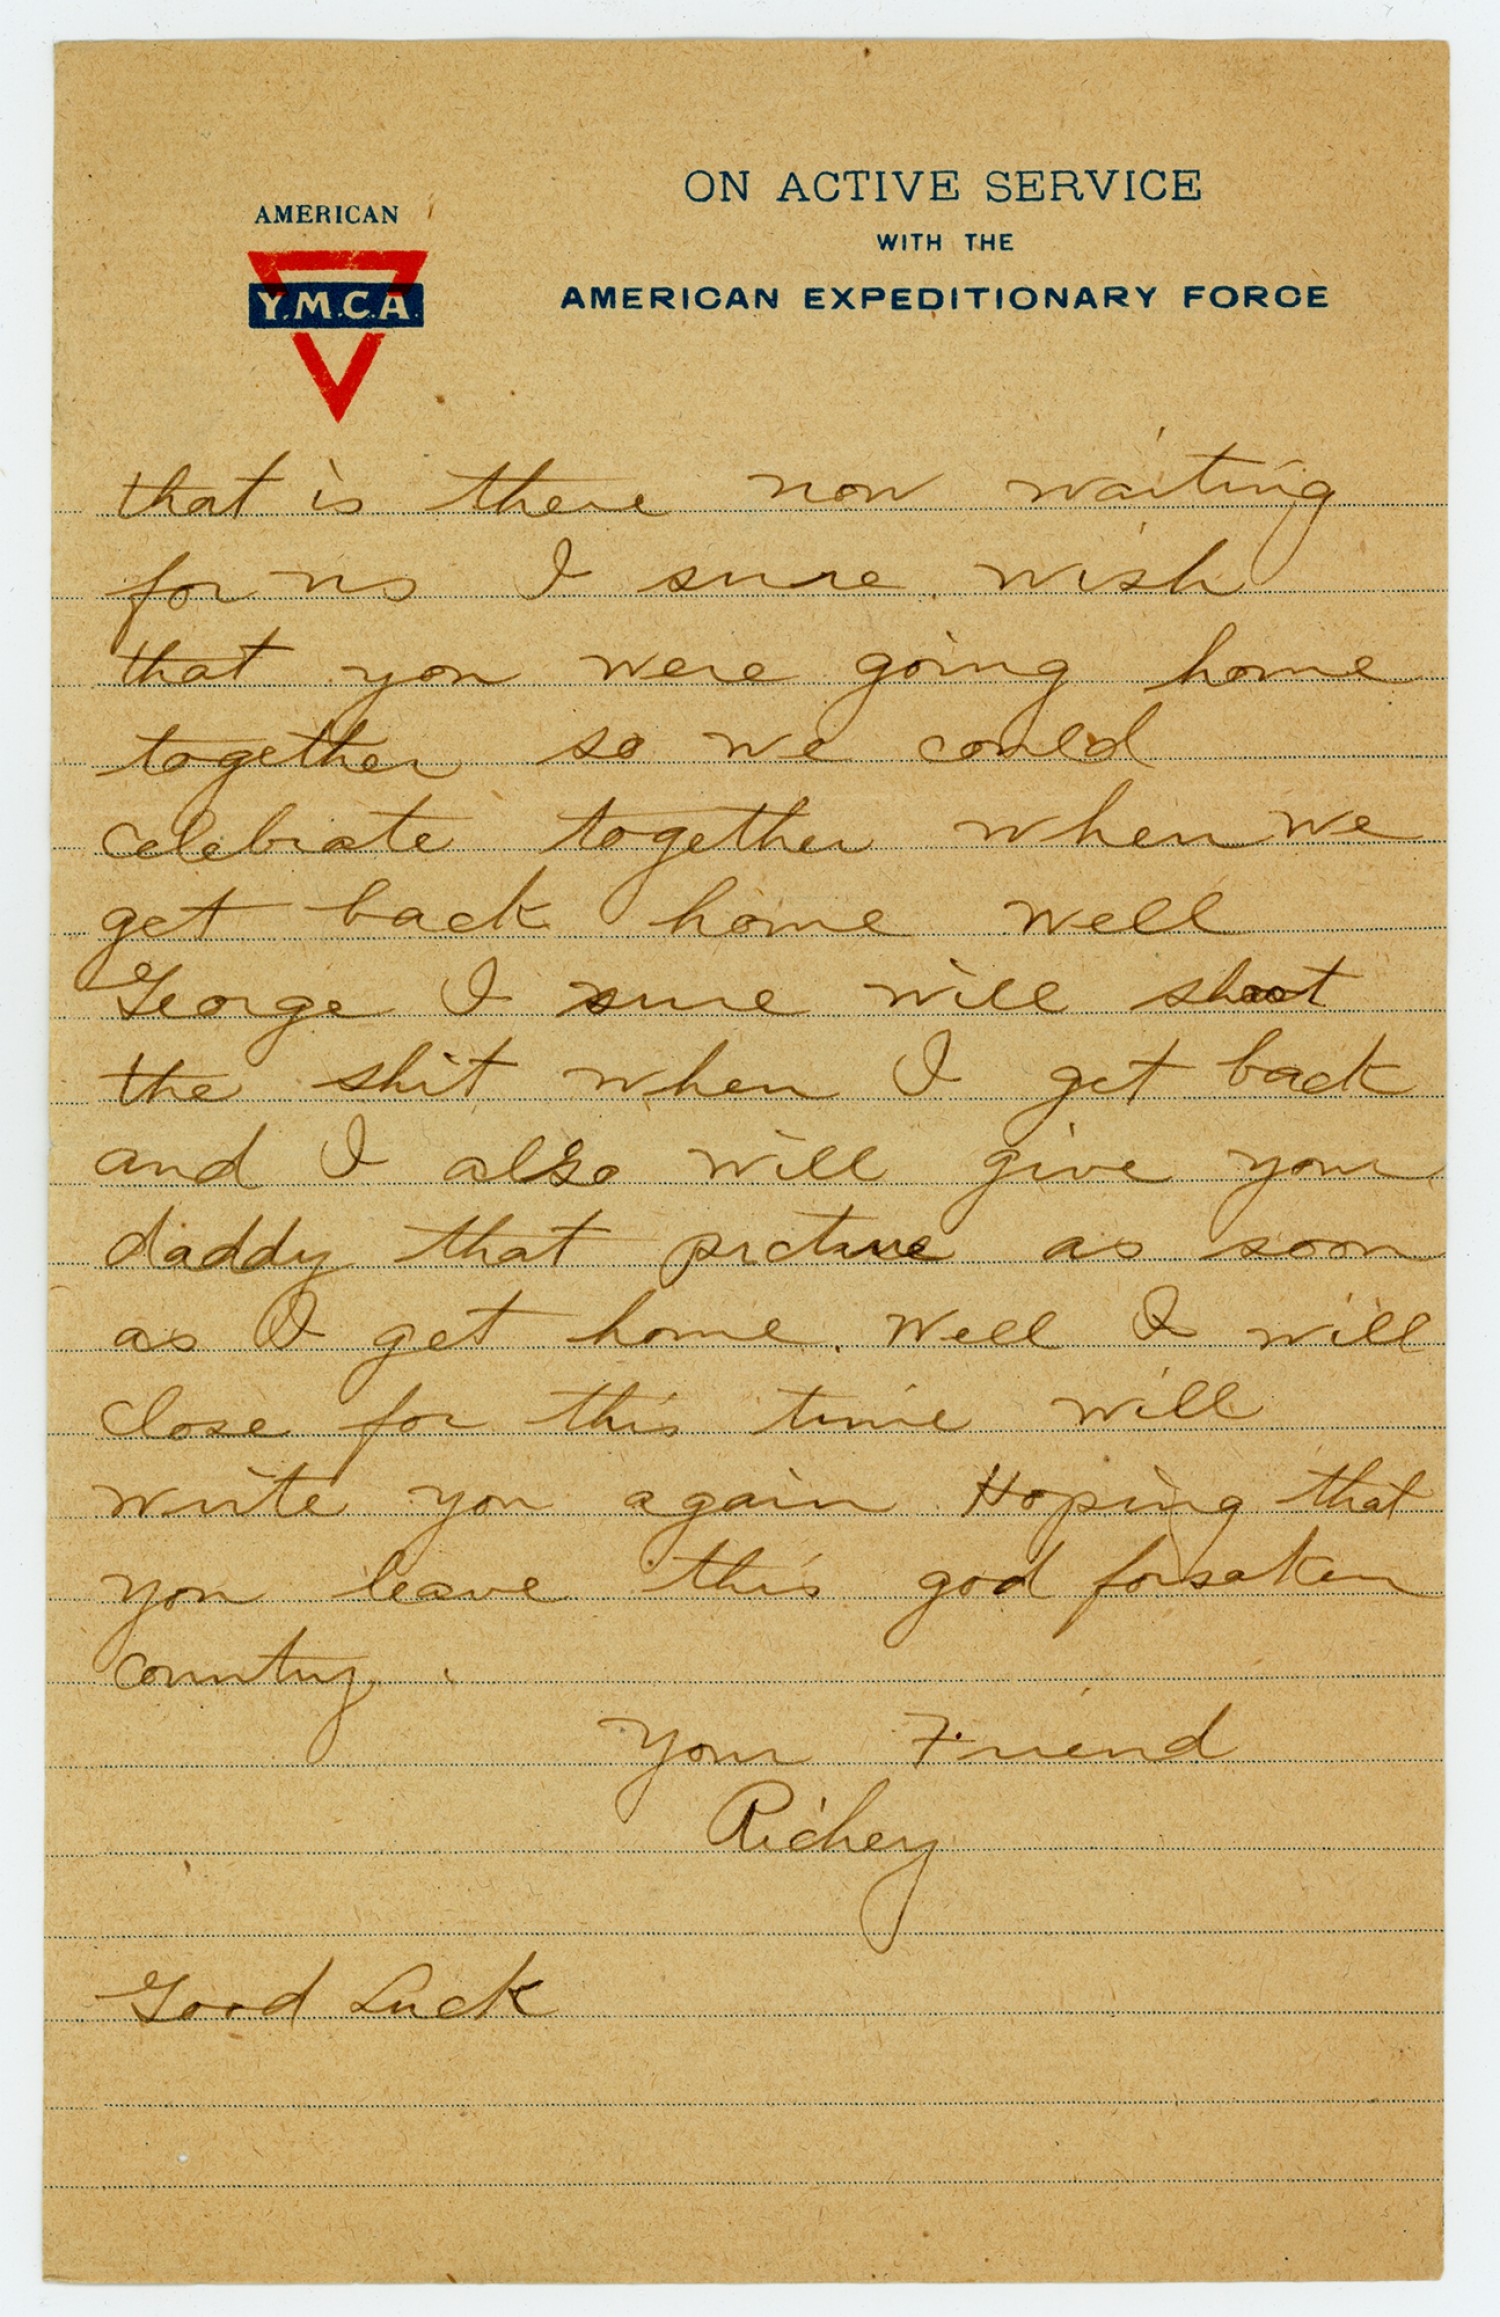 AMERICAN
Y.M.C.A.
ON ACTIVE SERVICE
WITH THE
AMERICAN EXPEDITIONARY FORCE
that is there now waiting
for us I sure wish
that you were going home
together so we could
celebrate together when we
get back home well
George I sure will shoot
the shit when I get back
and I also will give your
daddy that picture as soon
as I get home. Well I will
close for this time will
write you again Hoping that
you leave this god forsaken
country.
Your Friend
Richey
Good Luck